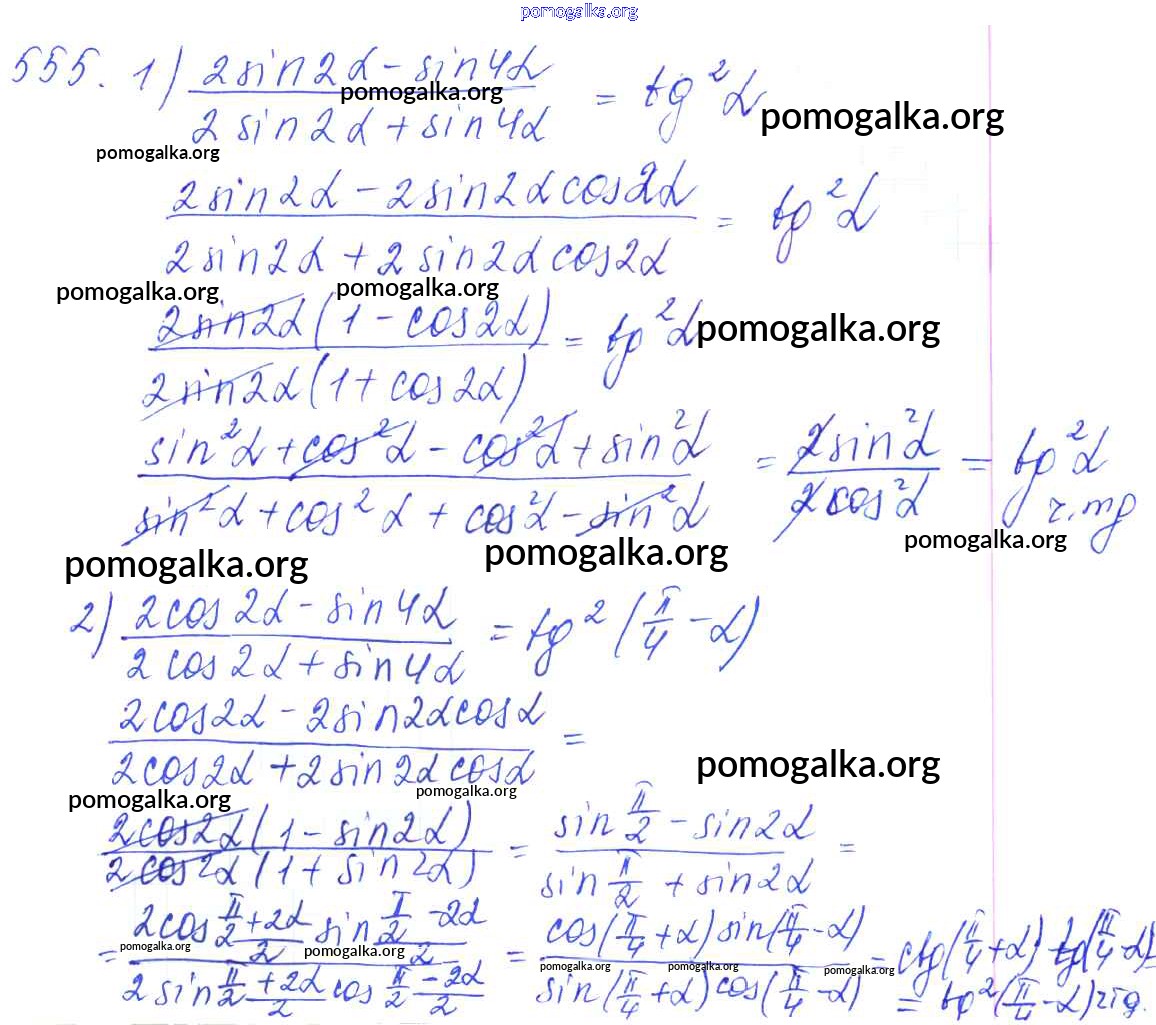 pomogalka.org
555. 1) (2sin2α − sin4α)/(2sin2α + sin4α) = tg²α
pomogalka.org
pomogalka.org
pomogalka.org
(2sin2α − 2sin2αcos2α)/(2sin2α + 2sin2αcos2α) = tg²α
pomogalka.org
pomogalka.org
2sin2α(1 − cos2α)/2sin2α(1 + cos2α) = tg²α
pomogalka.org
(sin²α + cos²α − cos²α + sin²α)/(sin²α + cos²α + cos²α − sin²α) = 2sin²α/2cos²α = tg²α
pomogalka.org
pomogalka.org
pomogalka.org
2) (2cos2α − sin4α)/(2cos2α + sin4α) = tg²(π/4 − α)
(2cos2α − 2sin2αcosα)/(2cos2α + 2sin2αcosα) =
pomogalka.org
pomogalka.org
pomogalka.org
2cos2α(1 − sin2α)/2cos2α(1 + sin2α) = (sin π/2 − sin2α)/(sin π/2 + sin2α) =
= (2cos (π/2 + 2α)/2 sin (π/2 − 2α)/2)/(2sin (π/2 + 2α)/2 cos (π/2 − 2α)/2) = cos(π/4 + α) sin(π/4 − α)/sin(π/4 + α) cos(π/4 − α) = ctg(π/4 + α) tg(π/4 − α) =
pomogalka.org
pomogalka.org
pomogalka.org
pomogalka.org
pomogalka.org
= tg²(π/4 − α)